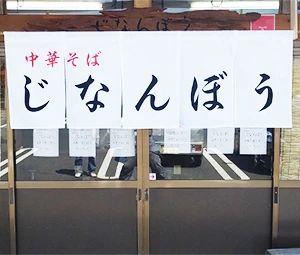 じなんぼう
中華そば
じなんぼう